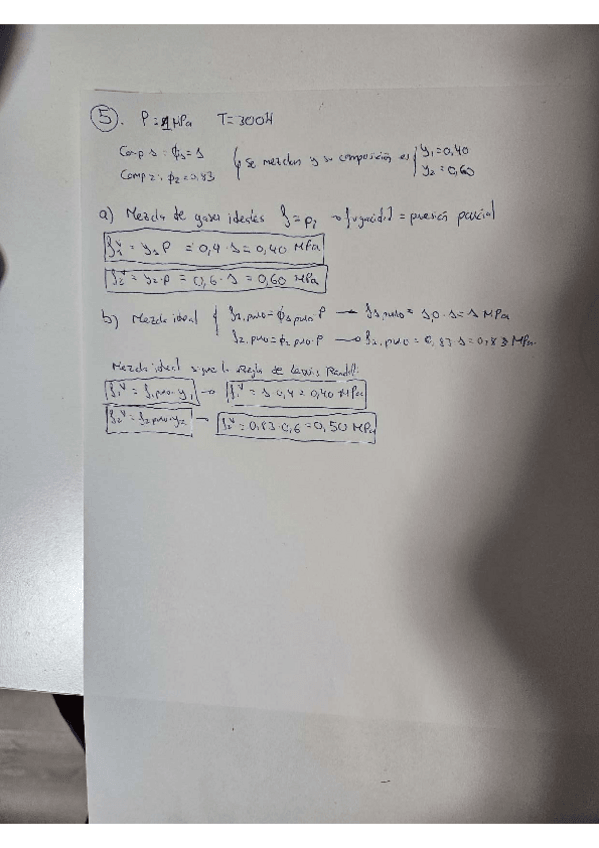 5. P=1MPa T=300K
Comp 1: ϕ1=1 { se mezclan y su composición es { y1=0,40
Comp 2: ϕ2=0,83 y2=0,60
a) Mezcla de gases ideales f=Pi → fugacidad = presión parcial
f1^v = y1 P = 0,4 · 1 = 0,40 MPa
f2^v = y2·P = 0,6 · 1 = 0,60 MPa
b) Mezcla ideal { f1,puro=ϕ1,puro·P → f1,puro = 1,0·1=1 MPa
f2,puro=ϕ2,puro·P → f2,puro = 0,83·1=0,83 MPa.
Mezcla ideal sigue la Regla de Lewis Randall:
f1^v = f1,puro·y1 → f1^v = 1·0,4 = 0,40 MPa
f2^v = f2,puro·y2 → f2^v = 0,83·0,6 = 0,50 MPa